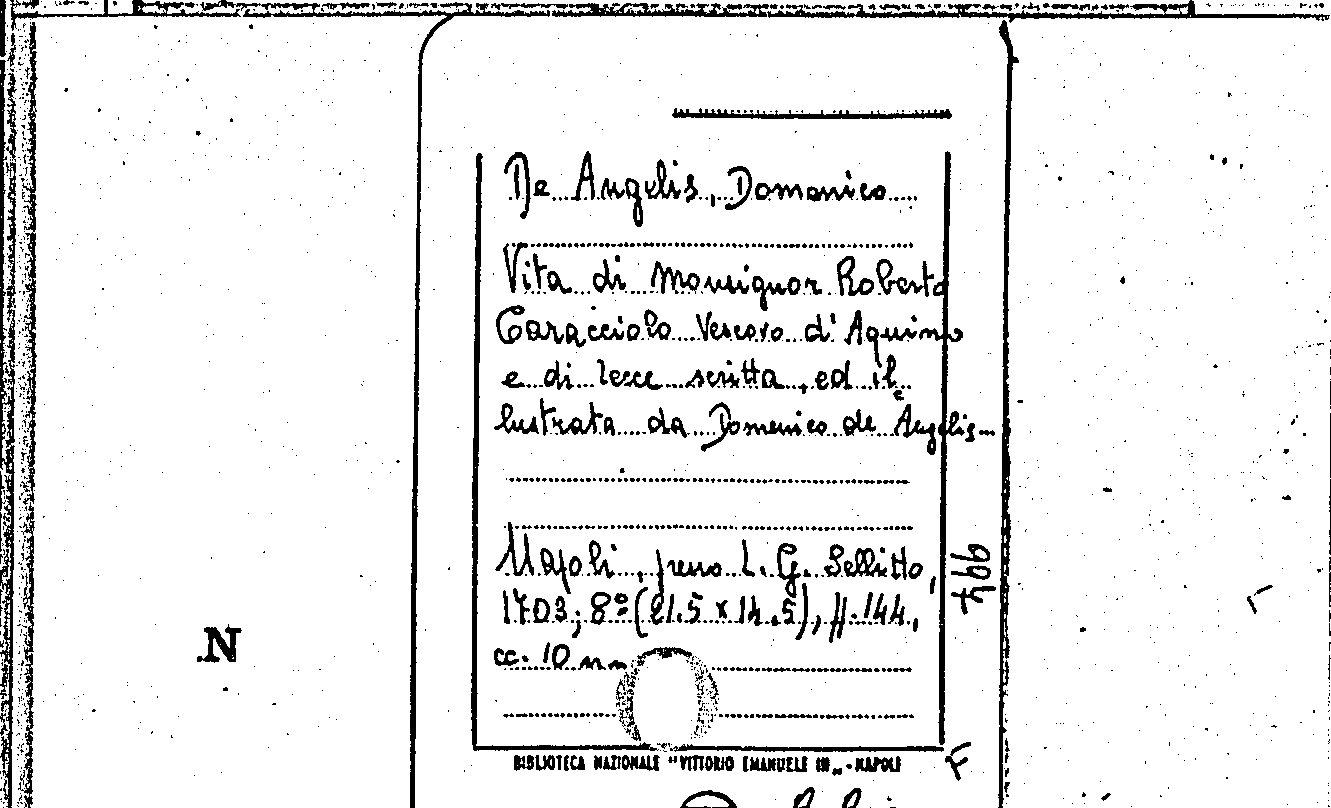 De Angelis, Domenico
Vita di Monsignor Roberto
Caracciolo Vescovo d'Aquino
e di Lecce scritta, ed il
lustrata da Domenico de Angelis...
Napoli, presso L. G. Sellitto,
1703; 8º (21.5 x 14.5), pp. 144,
cc. 10 nn
N
BIBLIOTECA NAZIONALE "VITTORIO EMANUELE III" - NAPOLI